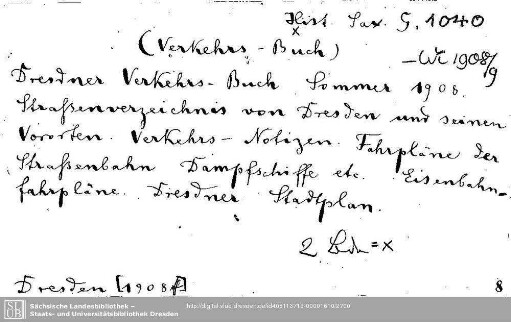 Hist. Sax. G. 1040
x
(Verkehrs-Buch)
-Wi 1908/9
Dresdner Verkehrs-Buch Sommer 1908.
Straßenverzeichnis von Dresden und seinen
Vororten. Verkehrs-Notizen. Fahrpläne der
Straßenbahn Dampfschiffe etc. Eisenbahn=
fahrpläne. Dresdner Stadtplan.
2 Bde = x
Dresden [1908
8
Sächsische Landesbibliothek –
Staats- und Universitätsbibliothek Dresden